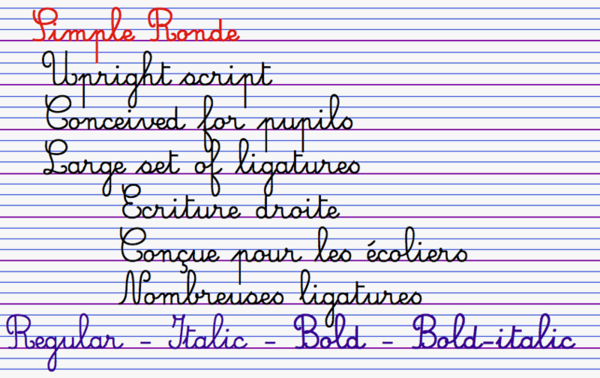 Simple Ronde
Upright script
Conceived for pupils
Large set of ligatures
Ecriture droite
Conçue pour les écoliers
Nombreuses ligatures
Regular - Italic - Bold - Bold-italic